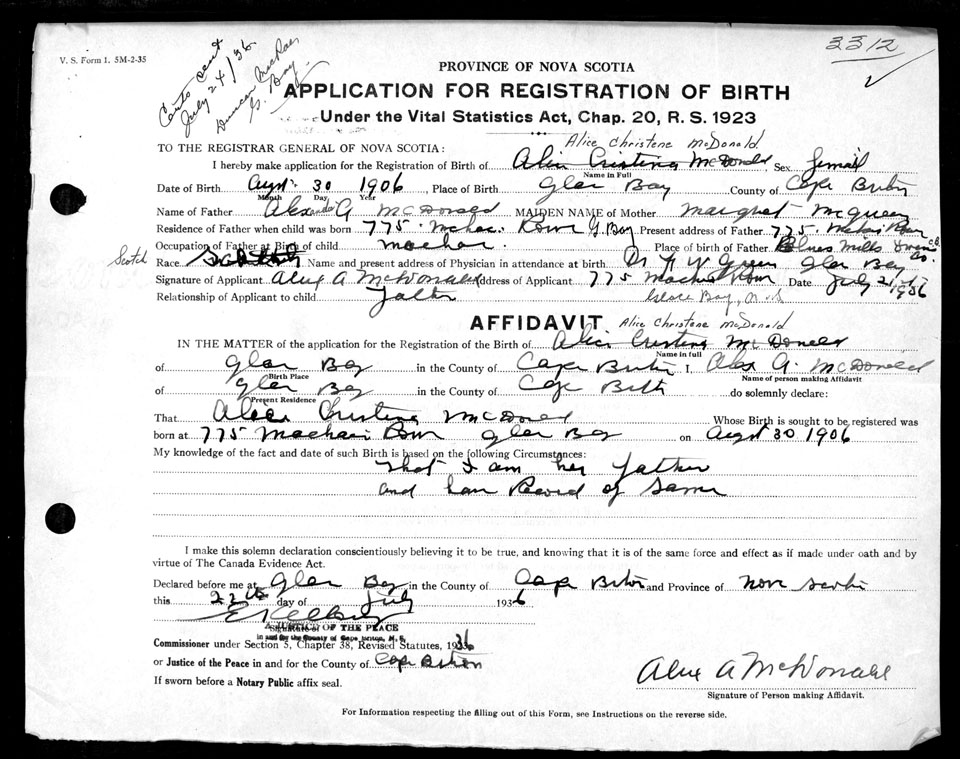 V. S. Form 1. 5M-2-35
Certs sent
July 24/36
Duncan MacRae
G. Bay
3312
PROVINCE OF NOVA SCOTIA
APPLICATION FOR REGISTRATION OF BIRTH
Under the Vital Statistics Act, Chap. 20, R. S. 1923
Alice Christene McDonald
TO THE REGISTRAR GENERAL OF NOVA SCOTIA:
I hereby make application for the Registration of Birth of Alice Cristena McDonald Sex female
Name in Full
Date of Birth Augst 30 1906, Place of Birth Glace Bay County of Cape Breton
Month Day Year
Name of Father Alexander A McDonald MAIDEN NAME of Mother Margret McQueen
Residence of Father when child was born 775 Row G. Bay Present address of Father 775 Row
Occupation of Father at Birth of child Place of birth of Father Mills C.B. Co.
Scotch
Race Name and present address of Physician in attendance at birth Glace Bay
Signature of Applicant Alex A McDonald Address of Applicant 775 Row Date July 21/1936
Relationship of Applicant to child Father Glace Bay, N.S
AFFIDAVIT
Alice Christene McDonald
IN THE MATTER of the application for the Registration of the Birth of Alice Cristena McDonald
Name in full
of Glace Bay in the County of Cape Breton I, Alex A. McDonald
Birth Place Name of person making Affidavit
of Glace Bay in the County of Cape Breton do solemnly declare:
Present Residence
That Alice Cristena McDonald Whose Birth is sought to be registered was
born at 775 Row Glace Bay on Augst 30 1906
My knowledge of the fact and date of such Birth is based on the following Circumstances:
that I am her father
and have Record of same
I make this solemn declaration conscientiously believing it to be true, and knowing that it is of the same force and effect as if made under oath and by
virtue of The Canada Evidence Act.
Declared before me at Glace Bay in the County of Cape Breton and Province of Nova Scotia
this 22th day of July 1936
A JUSTICE OF THE PEACE
in and for the County of Cape Breton, N. S.
Commissioner under Section 5, Chapter 38, Revised Statutes, 1936
or Justice of the Peace in and for the County of Cape Breton
If sworn before a Notary Public affix seal.
Alex A McDonald
Signature of Person making Affidavit.
For Information respecting the filling out of this Form, see Instructions on the reverse side.